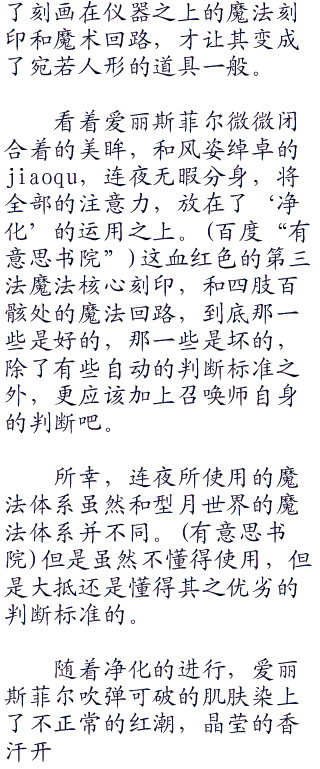 了刻画在仪器之上的魔法刻
印和魔术回路，才让其变成
了宛若人形的道具一般。
看着爱丽斯菲尔微微闭
合着的美眸，和风姿绰卓的
jiaoqu，连夜无暇分身，将
全部的注意力，放在了‘净
化’的运用之上。(百度“有
意思书院”)这血红色的第三
法魔法核心刻印，和四肢百
骸处的魔法回路，到底那一
些是好的，那一些是坏的，
除了有些自动的判断标准之
外，更应该加上召唤师自身
的判断吧。
所幸，连夜所使用的魔
法体系虽然和型月世界的魔
法体系并不同。(有意思书
院)但是虽然不懂得使用，但
是大抵还是懂得其之优劣的
判断标准的。
随着净化的进行，爱丽
斯菲尔吹弹可破的肌肤染上
了不正常的红潮，晶莹的香
汗开